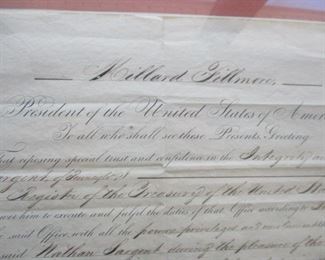 Millard Fillmore,
President of the United States of Amer
To all who shall see these Presents, Greeting
That reposing special trust and confidence in the Integrity a
Register of the Treasury of the United
him to execute and fulfil the duties of that Office according to
said Office with all the powers, privileges and
said Nathan Sargent during the pleasure of the